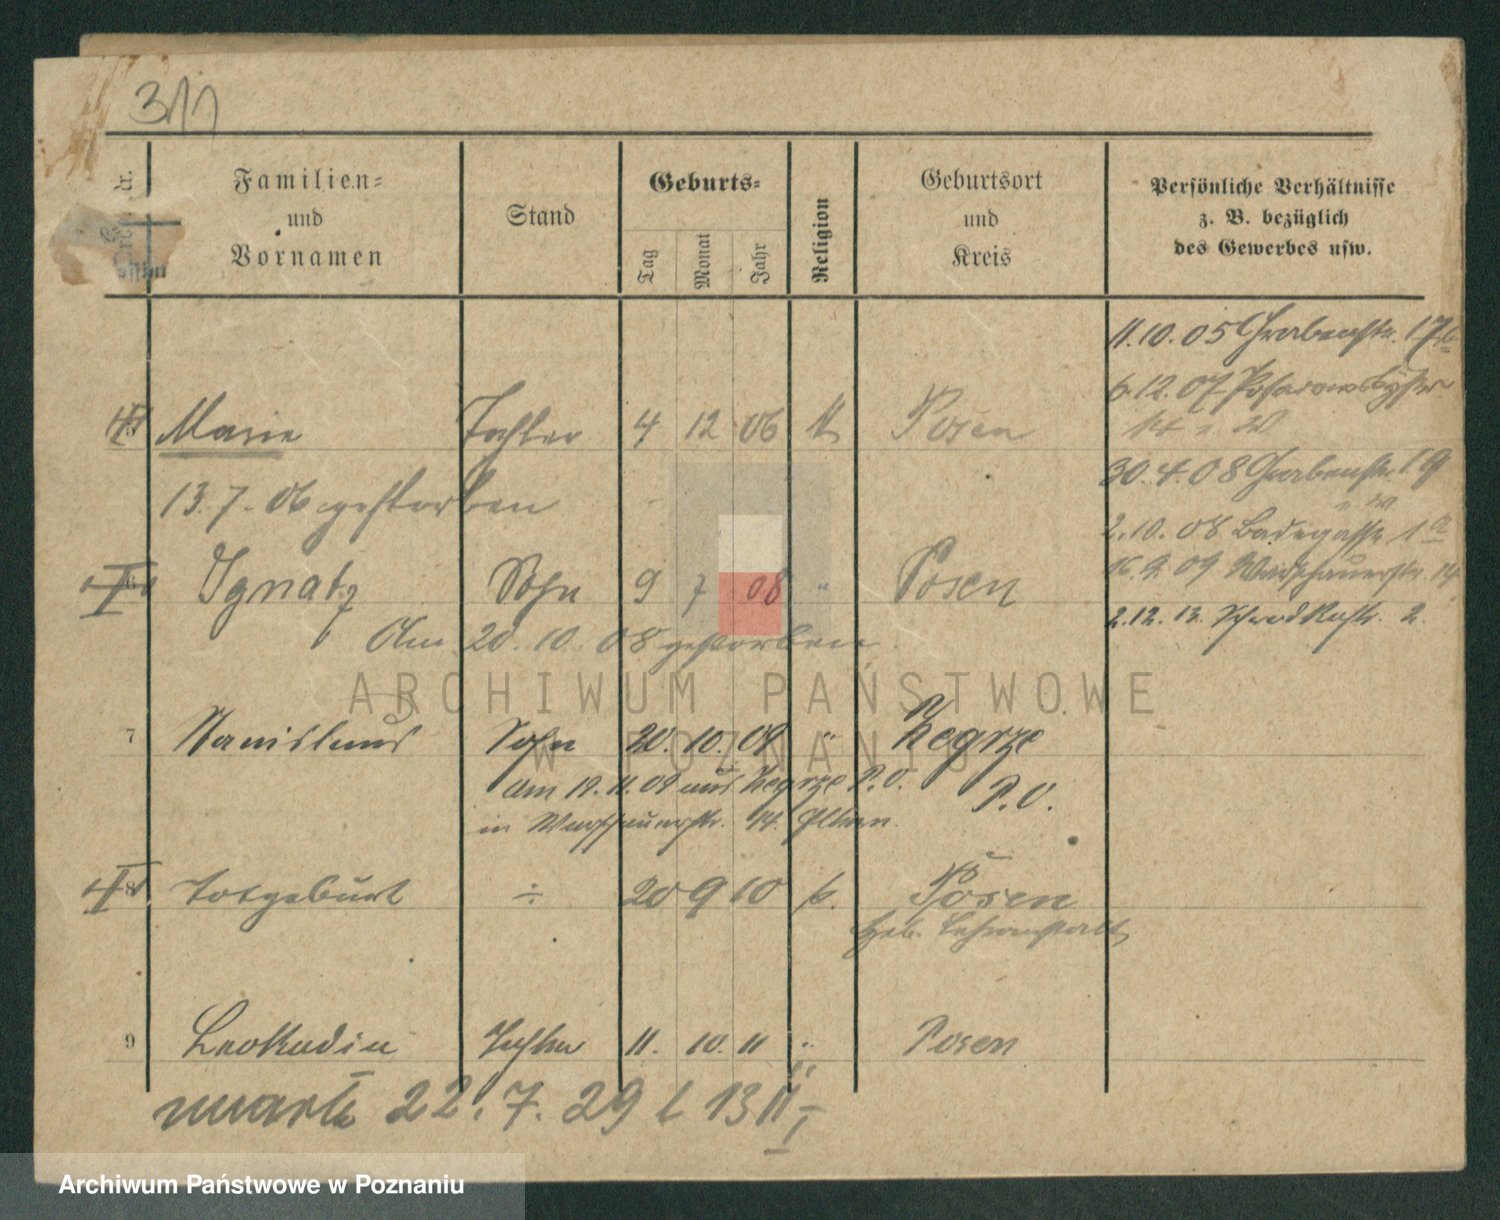 311
Familien-
und
Vornamen
Stand
Geburts-
Tag
Monat
Jahr
Religion
Geburtsort
und
Kreis
Persönliche Verhältnisse
z. B. bezüglich
des Gewerbes usw.
11.10.05 Grabenstr. 17
6.12.07
5 Marie Tochter 4 12 06 Posen
30.4.08 Grabenstr. 19
13.7.06 gestorben
2.10.08 Badegasse 1 a
16.9.09 Warschauerstr. 14
6 Ignatz Sohn 9 7 08 " Posen
2.12.12. 2.
Am 20.10.08 gestorben
7 Stanislaus Sohn 20. 10. 09 " Zegrze
P. O.
Am 19.11.09 aus Zegrze P. O.
in Warschauerstr. 14. Eltern
8 Totgeburt ÷ 20 9 10 k. Posen
Heb. Lehranstalt
9 Leokadia Tochter 11. 10. 11 " Posen
22.7.29 13
ARCHIWUM PAŃSTWOWE
W POZNANIU
Archiwum Państwowe w Poznaniu